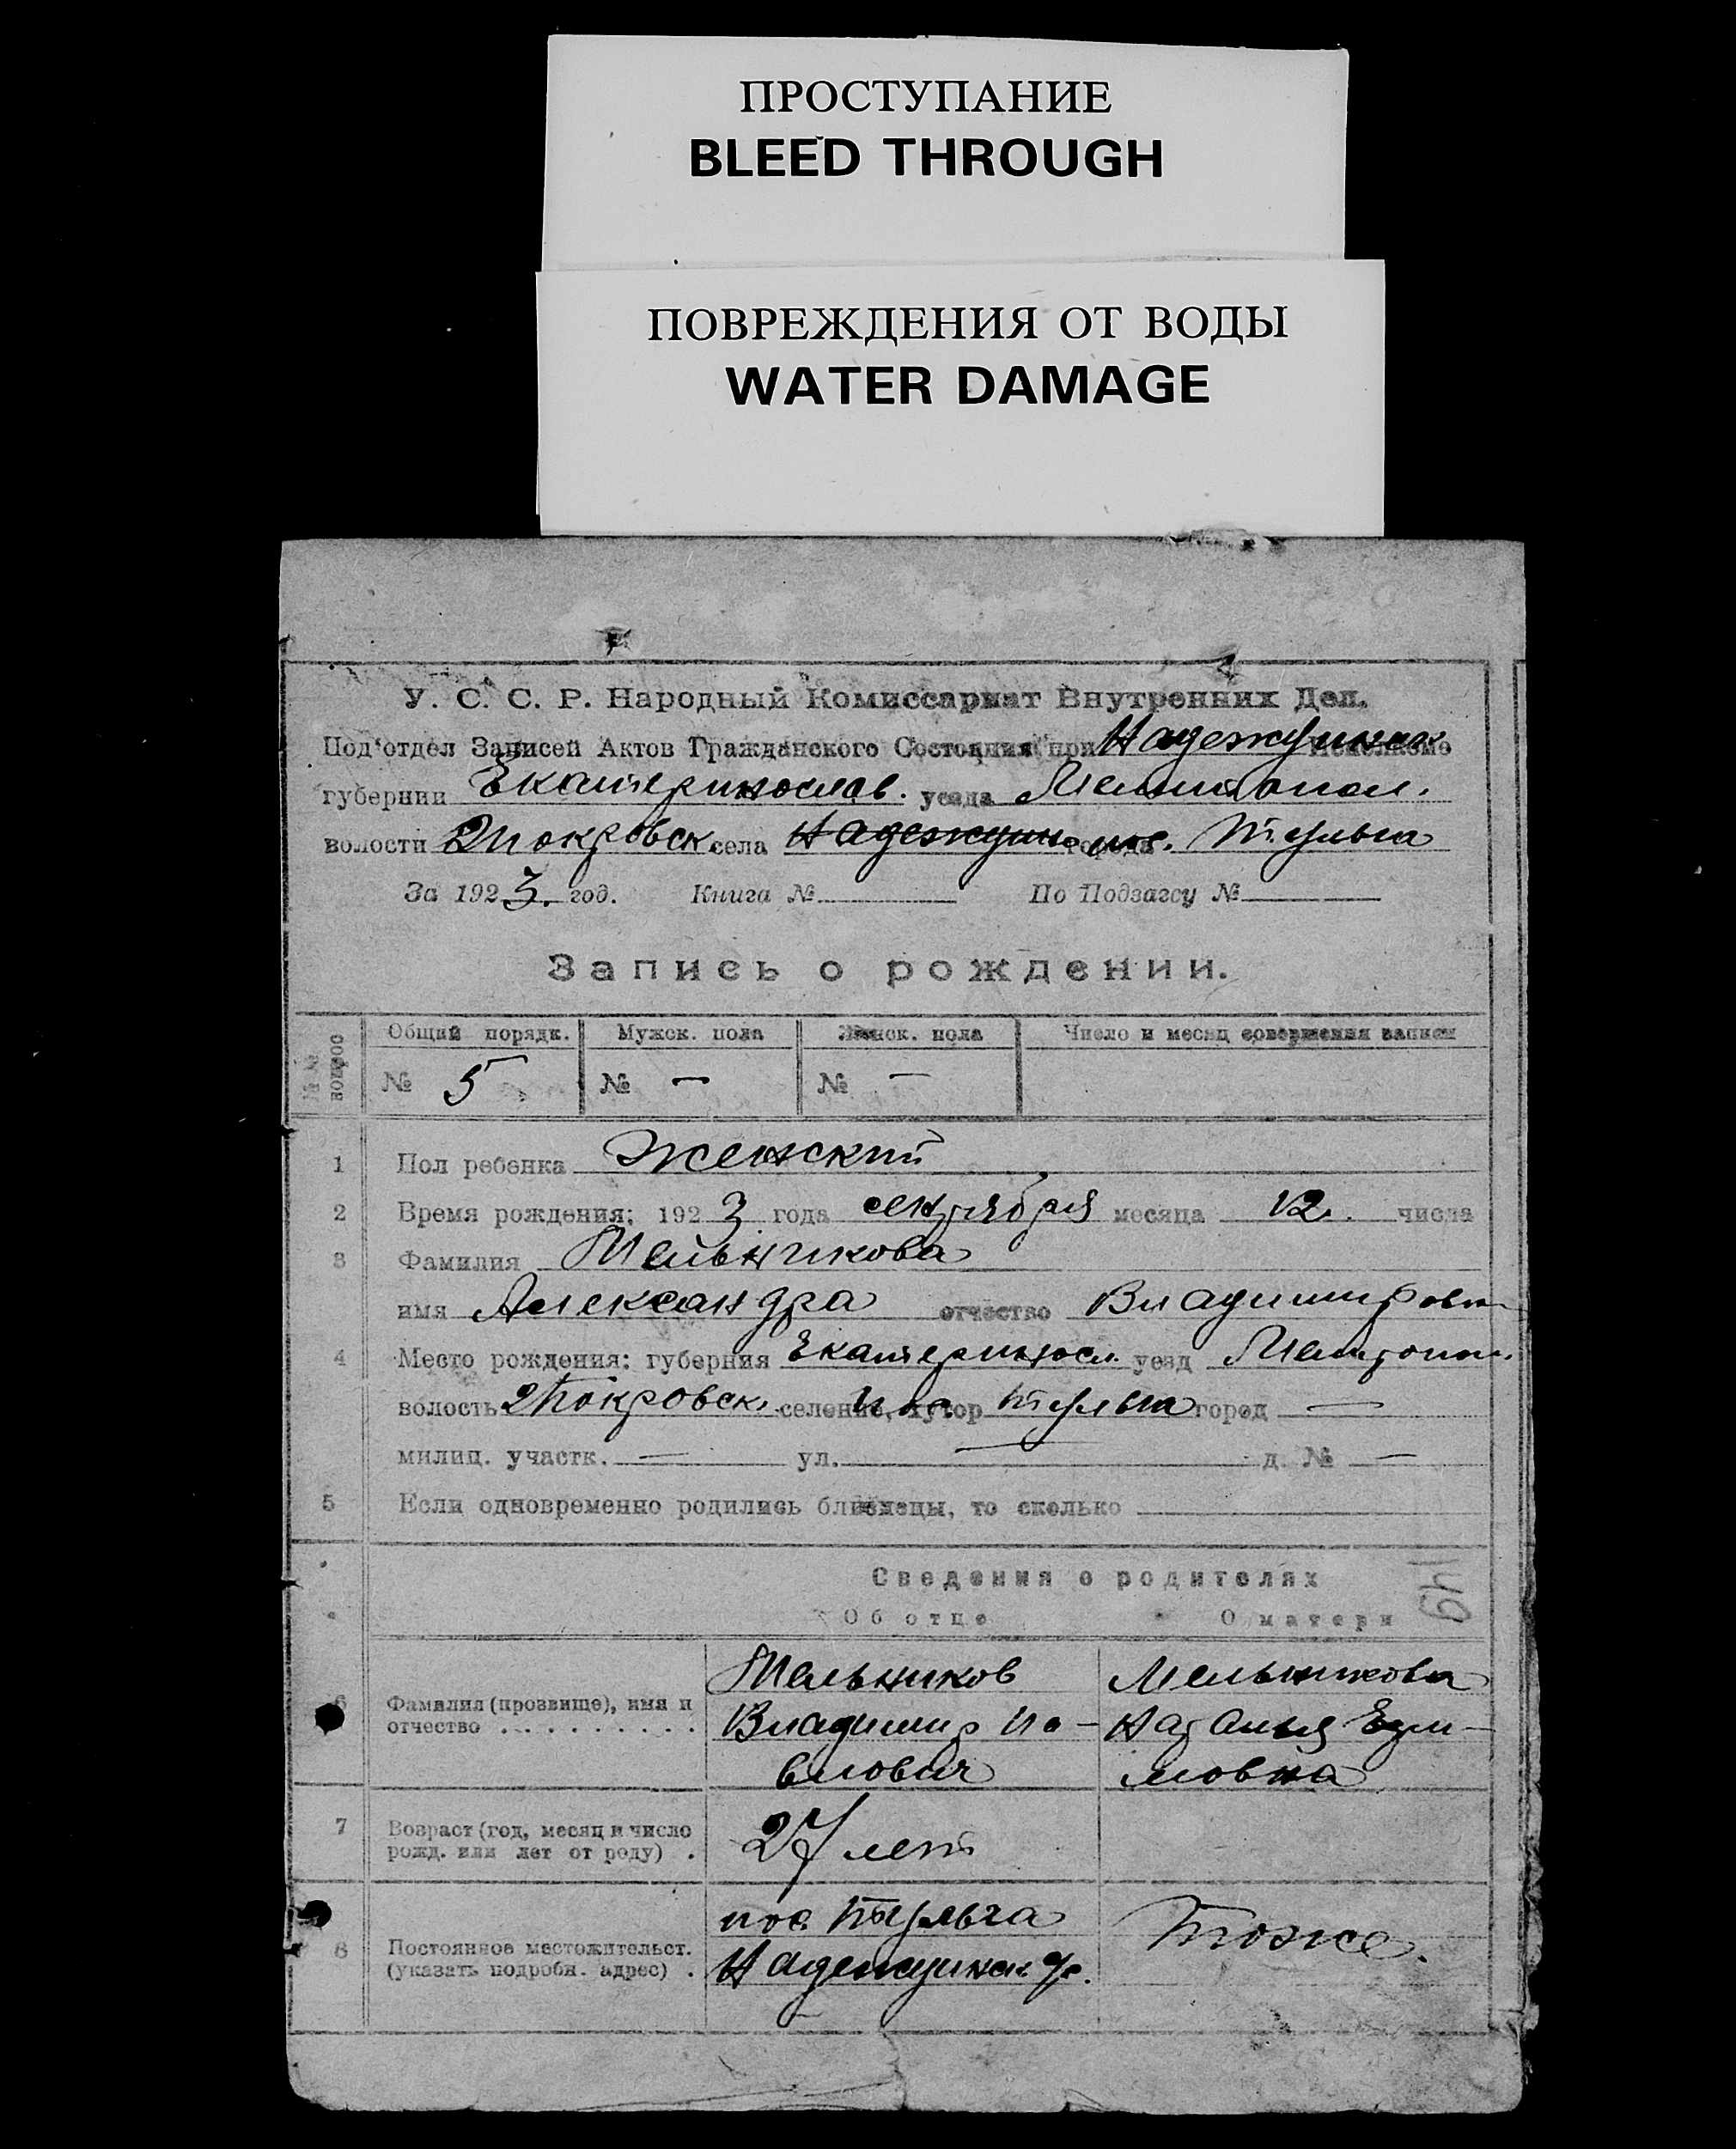 ПРОСТУПАНИЕ
BLEED THROUGH
ПОВРЕЖДЕНИЯ ОТ ВОДЫ
WATER DAMAGE
У. С. С. Р. Народный Комиссариат Внутренних Дел.
Под'отдел Записей Актов Гражданского Состояния при Надеждинск
губернии Екатеринослав. уезда Мелитопол.
волости 2 Покровск. села Надеждин города пос. Тульга
За 1923. год. Книга № По Подзагсу №
Запись о рождении.
№ № вопрос
Общий порядк. Мужск. пола Женск. пола Число и месяц совершения записи
№ 5 № — № —
1 Пол ребенка Женский
2 Время рождения: 1923 года сентября месяца 12. числа
3 Фамилия Мельникова
имя Александра отчество Владимировна
4 Место рождения: губерния Екатериносл. уезд Мелитопол.
волость 2 Покровск. селение, хутор пос. Тульга город —
милиц. участк. — ул. — д. № —
5 Если одновременно родились близнецы, то сколько
Сведения о родителях
149
Об отце О матери
6 Фамилия (прозвище), имя и отчество . . . . . . . . .
Мельников
Владимир Па-
влович
Мельникова
Наталья
7 Возраст (год, месяц и число рожд. или лет от роду) .
27 лет
8 Постоянное местожительст. (указать подробн. адрес) .
пос. Тульга
Надеждинск.
Тоже.